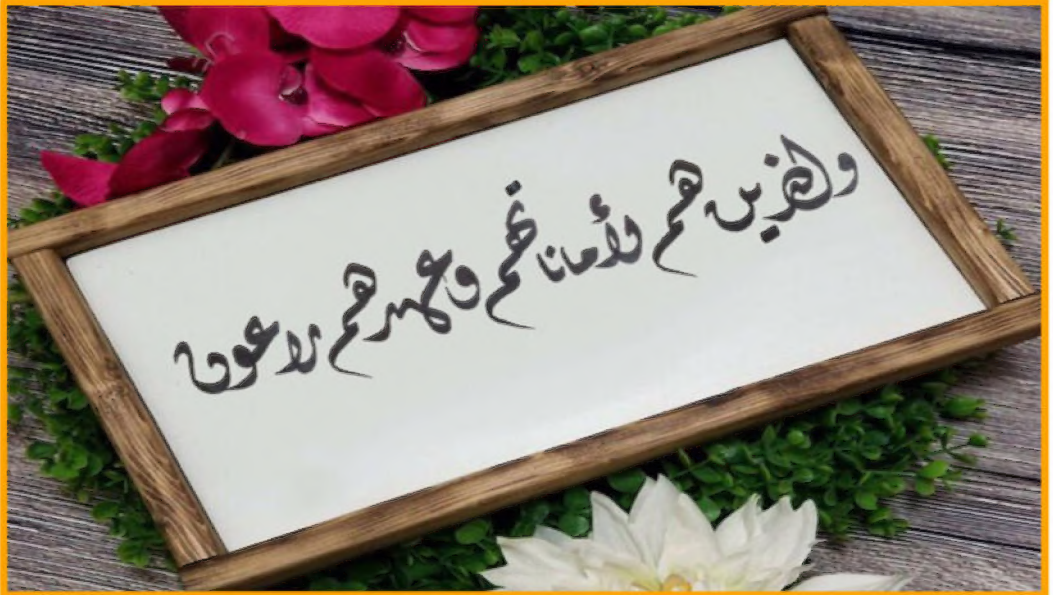 والذين هم لأماناتهم وعهدهم راعون